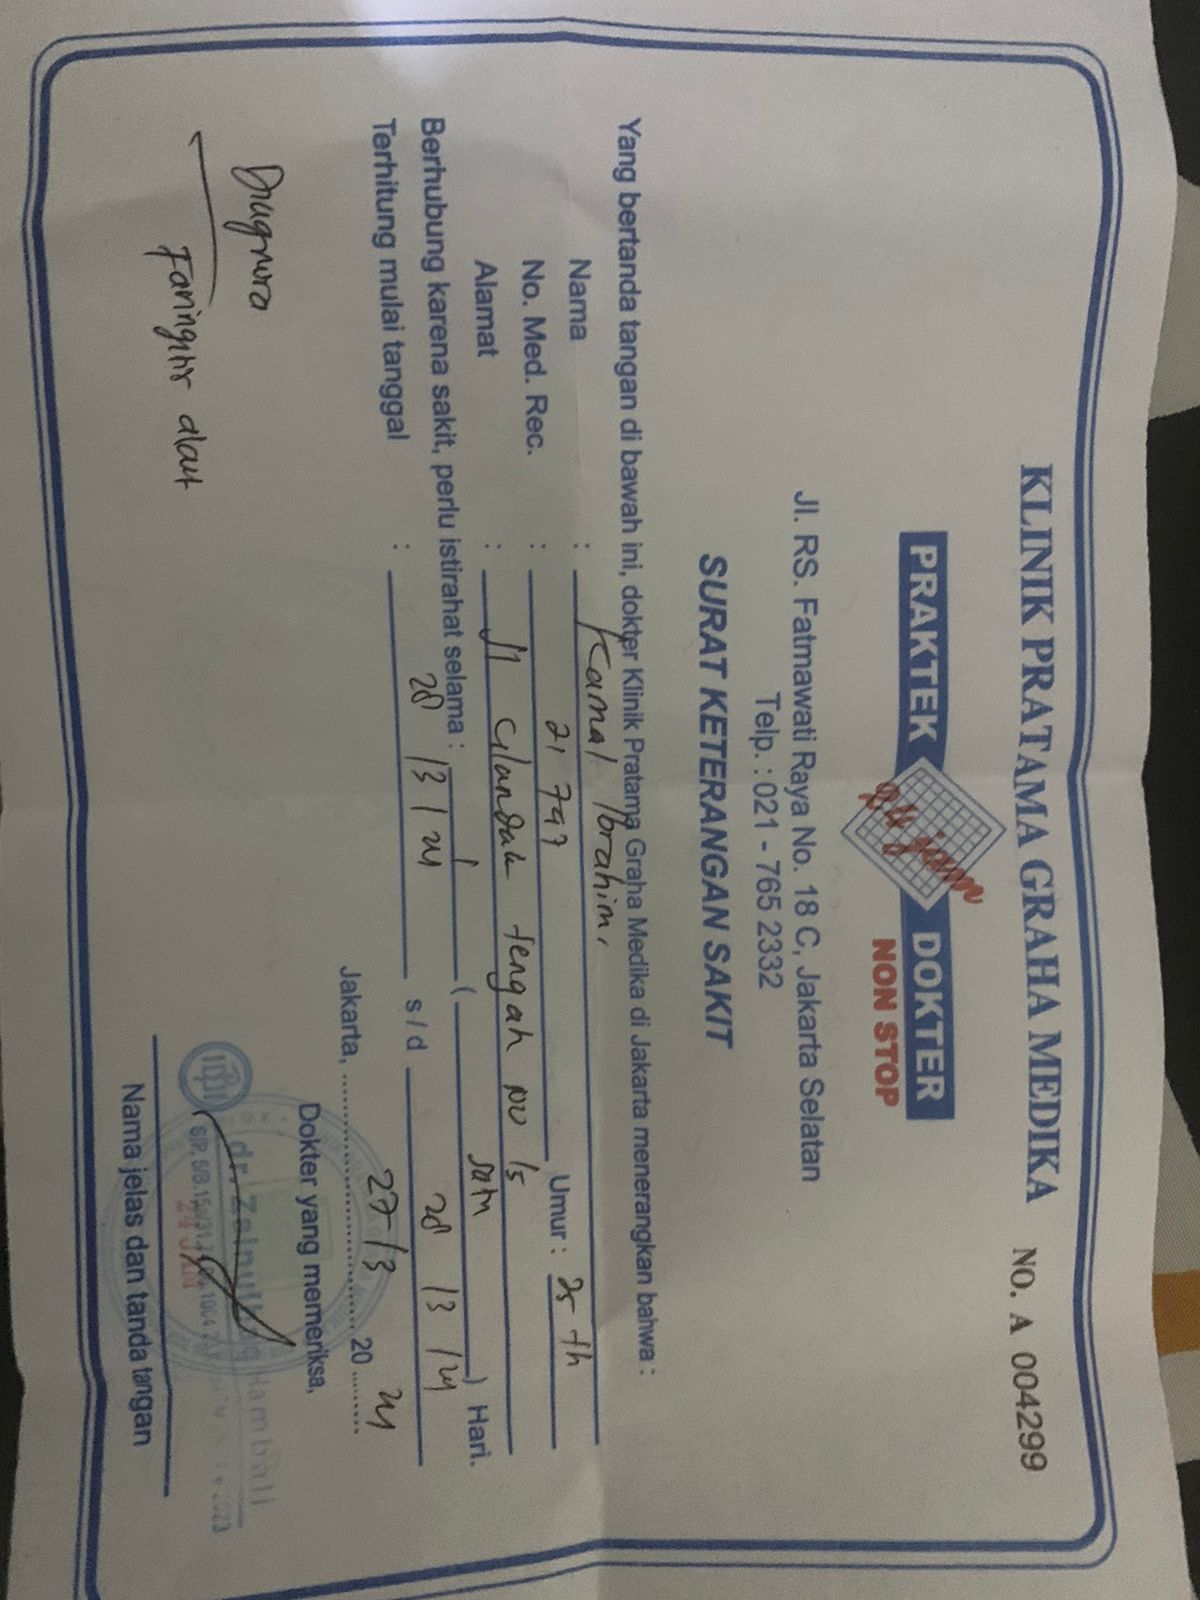 KLINIK PRATAMA GRAHA MEDIKA NO. A 004299
PRAKTEK 24 jam DOKTER
NON STOP
Jl. RS. Fatmawati Raya No. 18 C, Jakarta Selatan
Telp. : 021 - 765 2332
SURAT KETERANGAN SAKIT
Yang bertanda tangan di bawah ini, dokter Klinik Pratama Graha Medika di Jakarta menerangkan bahwa :
Nama : Kamal Ibrahim
No. Med. Rec. : 21 747 Umur : 25 th
Alamat : Jl Cilandak tengah no 15
Berhubung karena sakit, perlu istirahat selama : 1 ( satu ) Hari.
Terhitung mulai tanggal : 28 / 3 / 24 s / d 28 / 3 / 24
Jakarta, 27 / 3 20 24
Diagnosa
Dokter yang memeriksa,
Faringitis akut
dr. Zainul Hambali
Nama jelas dan tanda tangan